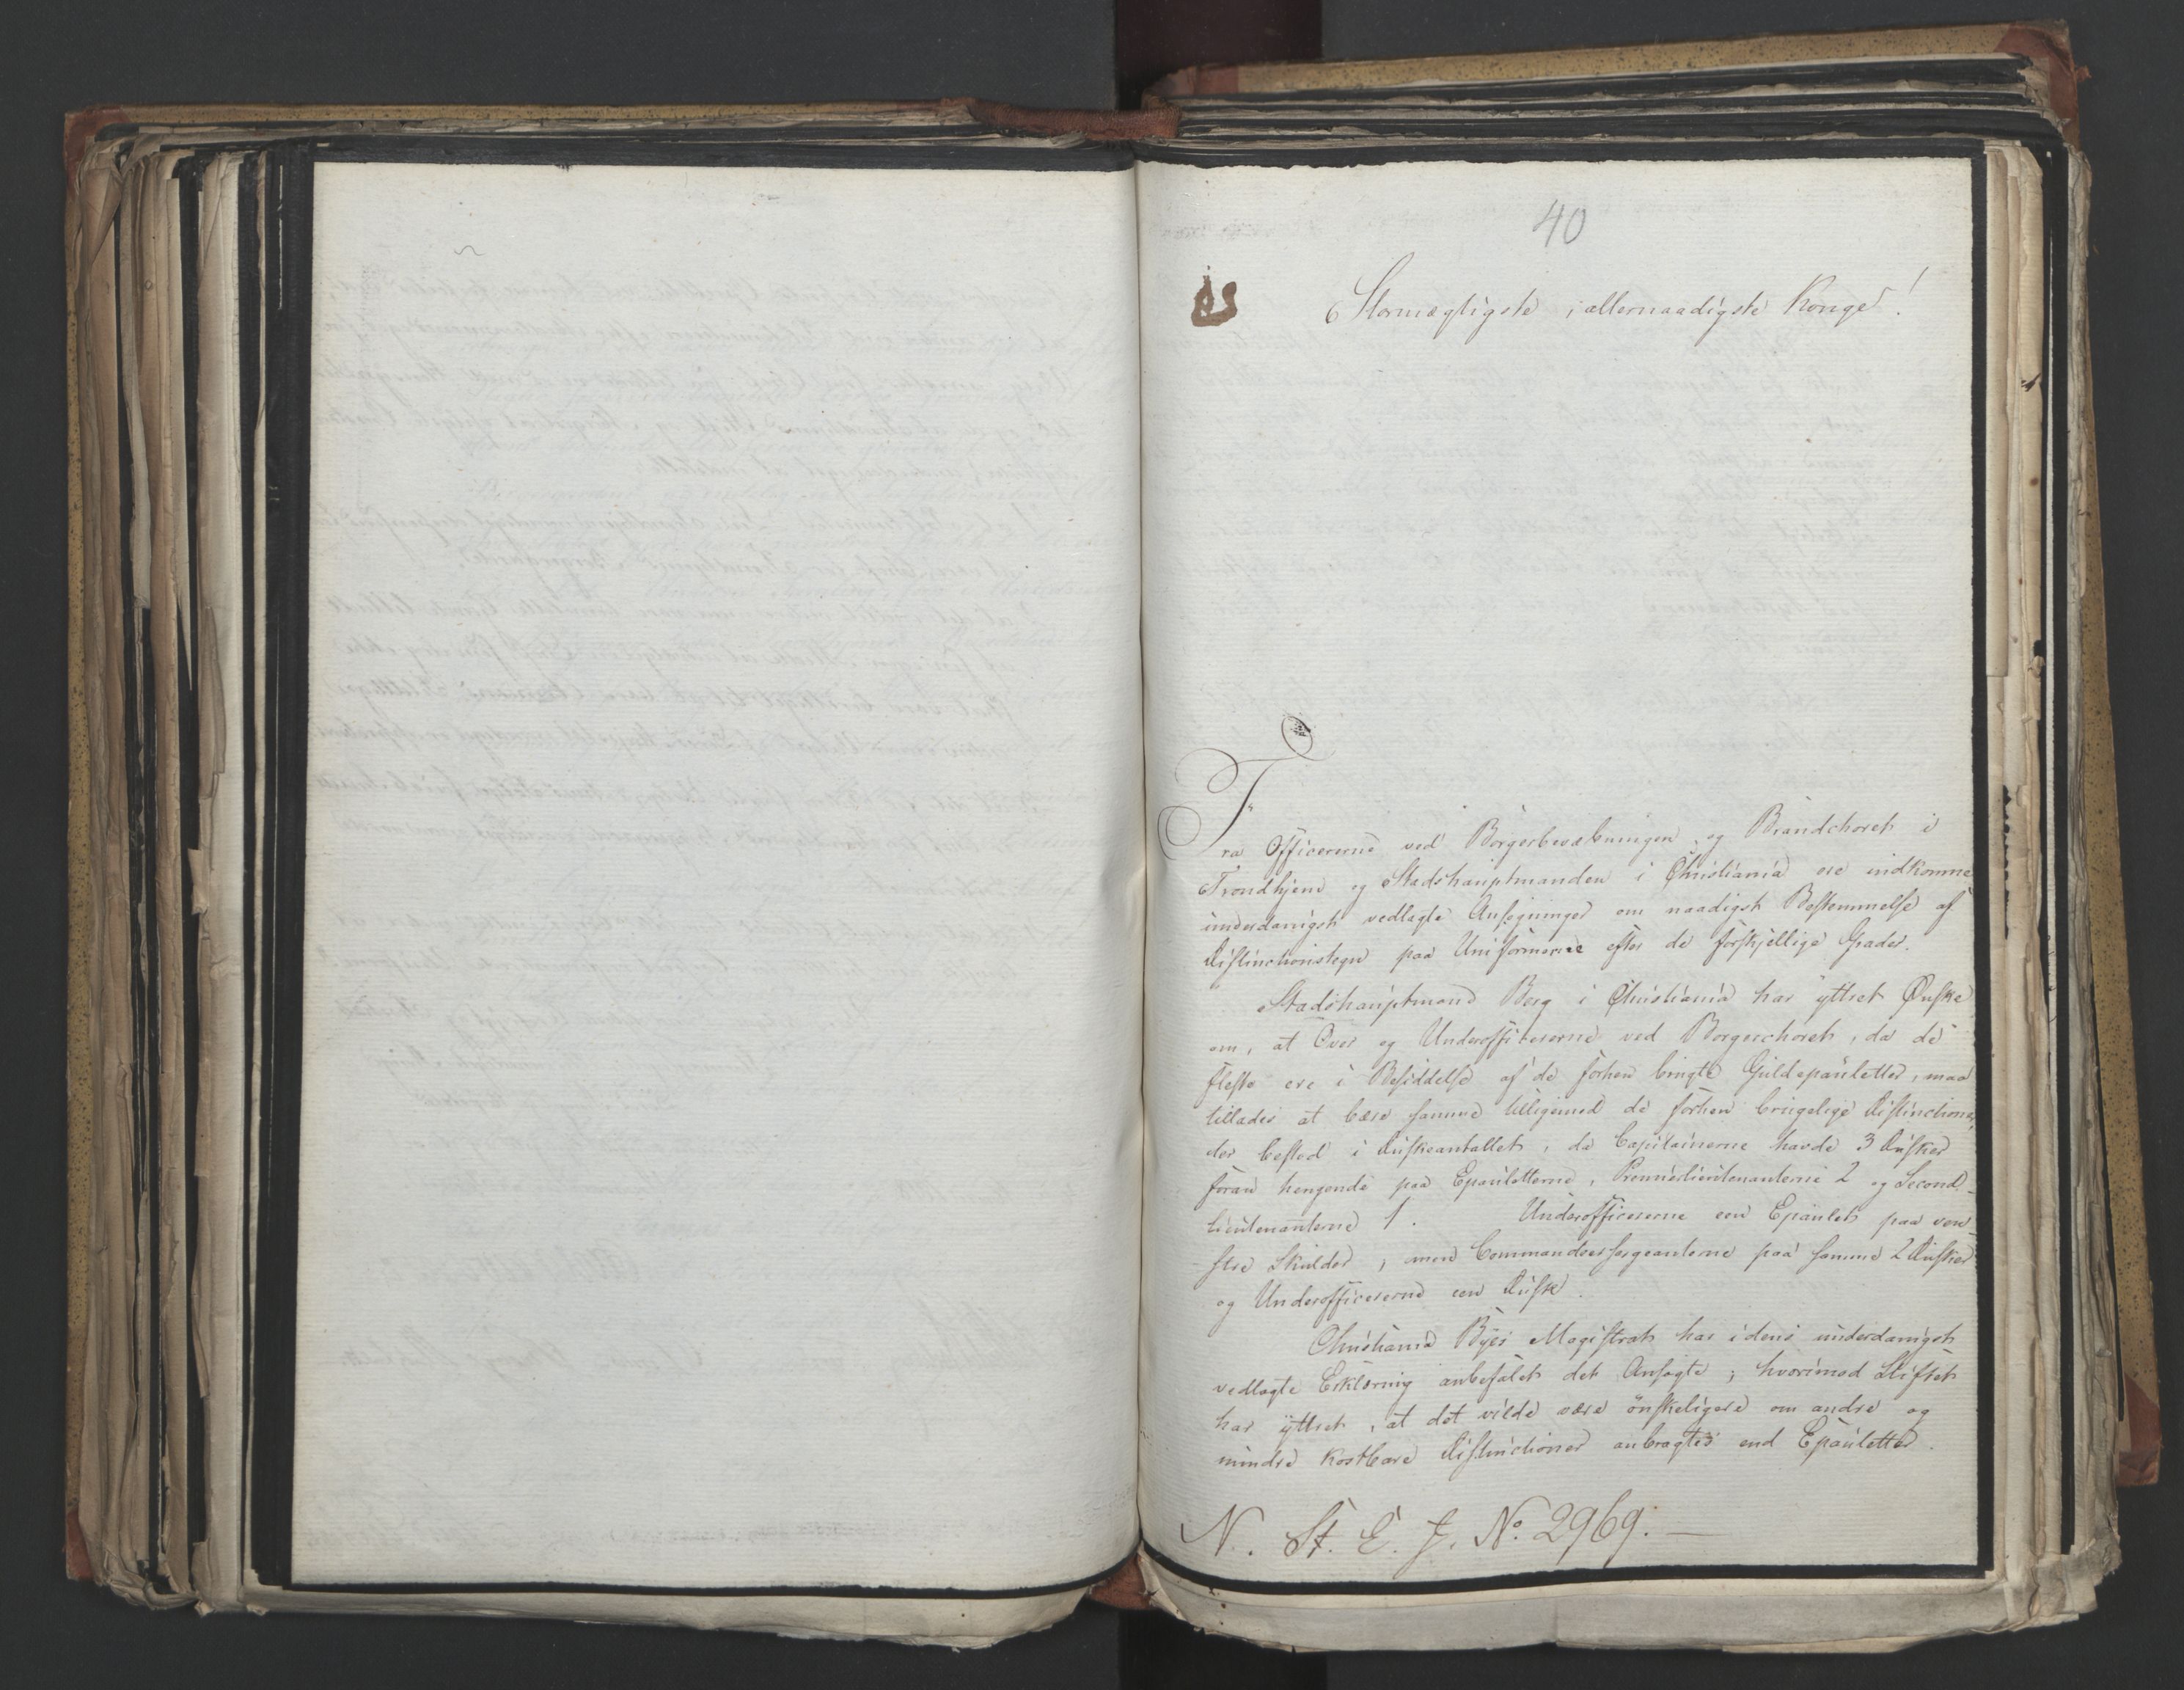 40
Stormægtigste, allernaadigste Konge!
Fra Officererne ved Borgerbevæbningen og Brandchoret i
Trondhjem og Stadshauptmanden i Christiania ere indkomne
underdanigst vedlagte Ansøgninger om naadigst Bestemmelse af
Distinctionstegn paa Uniformerne efter de forskjellige Grader.
Stadshauptmand Berg i Christiania har yttret Ønske
om, at Over og Underofficererne ved Borgerchoret, da de
fleste ere i Besiddelse af de forhen brugte Guldepauletter, maa
tillades at bære samme tilligemed de forhen brugelige Distinctioner,
der bestod i Duskeantallet, da Capitainerne havde 3 Dusker
foran hengende paa Epauletterne, Premierlieutenanterne 2 og Second-
lieutenanterne 1. Underofficererne een Epaulet paa ven-
stre Skulder, med Commandeersergeanterne paa samme 2 Dusker
og Underofficererne een Dusk.
Christiania Byes Magistrat har i dens underdanigst
vedlagte Erklæring anbefalet det Ansøgte; hvorimod Stiftet
har yttret, at det vilde være ønskeligere om andre og
mindre kostbare Distinctioner anbragtes end Epauletter.
N. St. E. J. No. 2969.